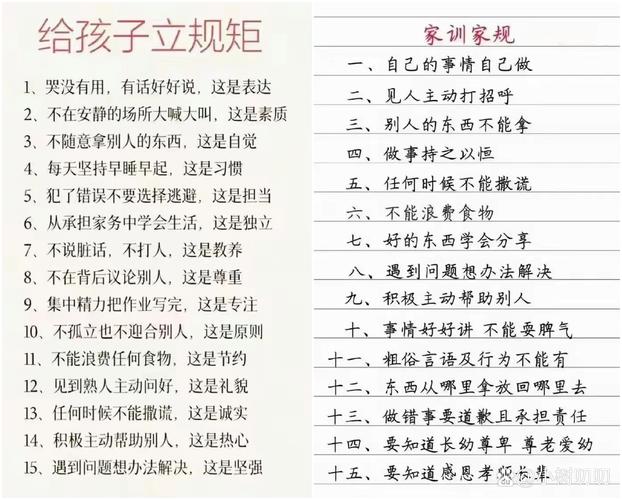 给孩子立规矩
1、哭没有用，有话好好说，这是表达
2、不在安静的场所大喊大叫，这是素质
3、不随意拿别人的东西，这是自觉
4、每天坚持早睡早起，这是习惯
5、犯了错误不要选择逃避，这是担当
6、从承担家务中学会生活，这是独立
7、不说脏话，不打人，这是教养
8、不在背后议论别人，这是尊重
9、集中精力把作业写完，这是专注
10、不孤立也不迎合别人，这是原则
11、不能浪费任何食物，这是节约
12、见到熟人主动问好，这是礼貌
13、任何时候不能撒谎，这是诚实
14、积极主动帮助别人，这是热心
15、遇到问题想办法解决，这是坚强
家训家规
一、自己的事情自己做
二、见人主动打招呼
三、别人的东西不能拿
四、做事持之以恒
五、任何时候不能撒谎
六、不能浪费食物
七、好的东西学会分享
八、遇到问题想办法解决
九、积极主动帮助别人
十、事情好好讲 不能耍脾气
十一、粗俗言语及行为不能有
十二、东西从哪里拿放回哪里去
十三、做错事要道歉且承担责任
十四、要知道长幼尊卑 尊老爱幼
十五、要知道感恩孝顺长辈